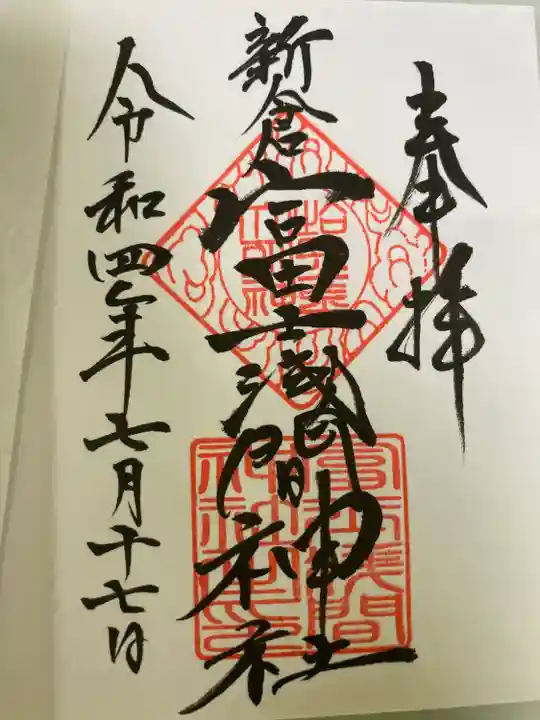 奉拝
新倉富士浅間神社
令和四年七月十七日
富士浅間
神社之印